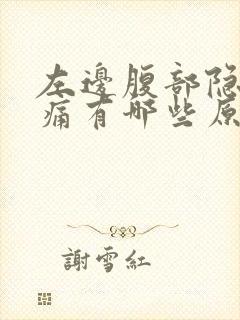 左邊腹部隐
痛有哪些原
謝雪紅